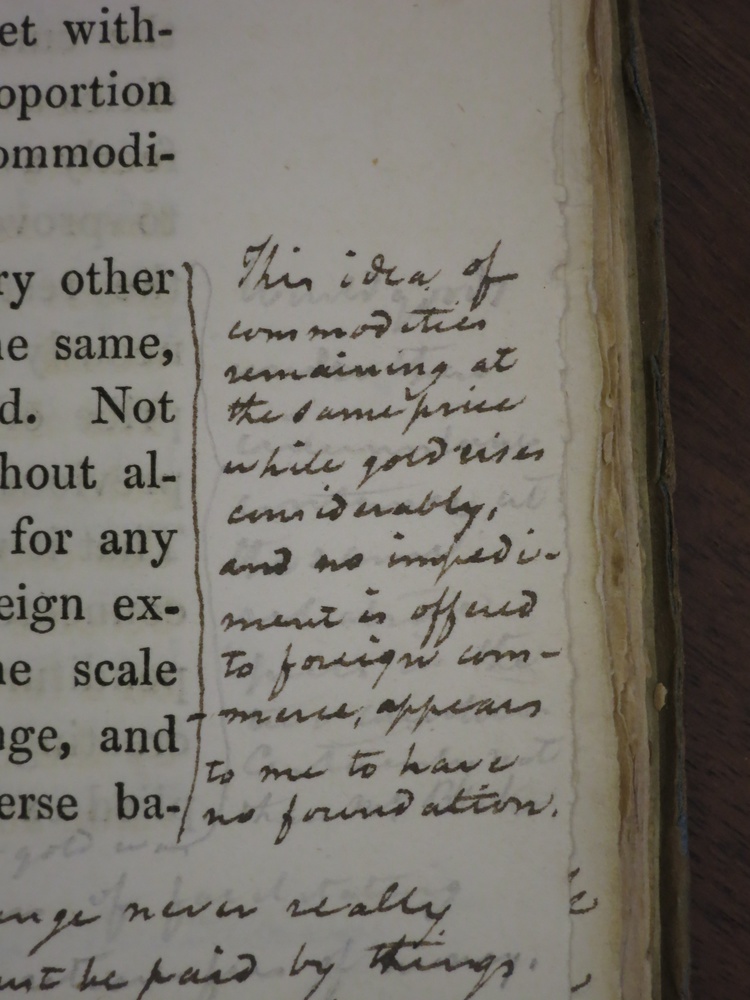 et with-
oportion
ommodi-
ry other
e same,
d. Not
hout al-
for any
eign ex-
e scale
nge, and
erse ba-
This idea of
commodities
remaining at
the same price
while gold rises
considerably,
and no impedi-
ment is offered
to foreign com-
merce, appears
to me to have
no foundation.
ange never really
ust be paid by things